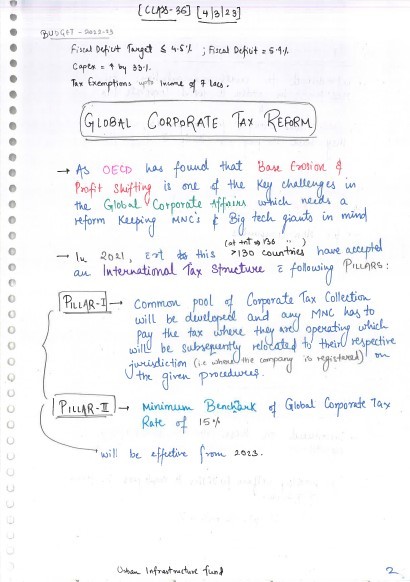 [CLASS-36] [4/3/23]
BUDGET - 2022-23
Fiscal Deficit Target ≤ 4.5% ; Fiscal Deficit = 5.9%
Capex = ↑ by 33%
Tax Exemptions upto Income of 7 lacs.
GLOBAL CORPORATE TAX REFORM
→ As OECD has found that Base Erosion &
Profit Shifting is one of the key challenges in
the Global Corporate Affairs which needs a
reform keeping MNC's & Big tech giants in mind
(at tnt → 136 " )
→ In 2021, this >130 countries have accepted
an International Tax Structure c̄ following PILLARS:
PILLAR-I → Common pool of Corporate Tax Collection
will be developed and any MNC has to
pay the tax where they are operating which
will be subsequently relocated to their respective
jurisdiction (i.e where the company is registered) on
the given procedures.
PILLAR-II → Minimum Benchark of Global Corporate Tax
Rate of 15%
will be effective from 2023.
Urban Infrastructure fund
2